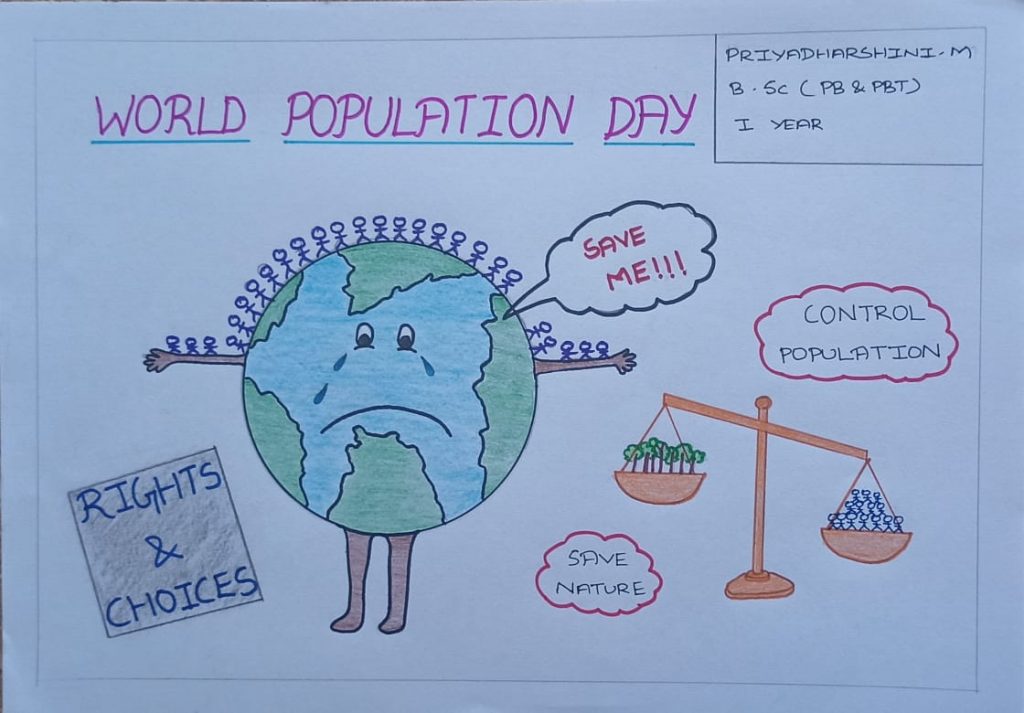 PRIYADHARSHINI-M
B.Sc (PB & PBT)
I YEAR
WORLD POPULATION DAY
SAVE
ME!!!
CONTROL
POPULATION
RIGHTS
&
CHOICES
SAVE
NATURE